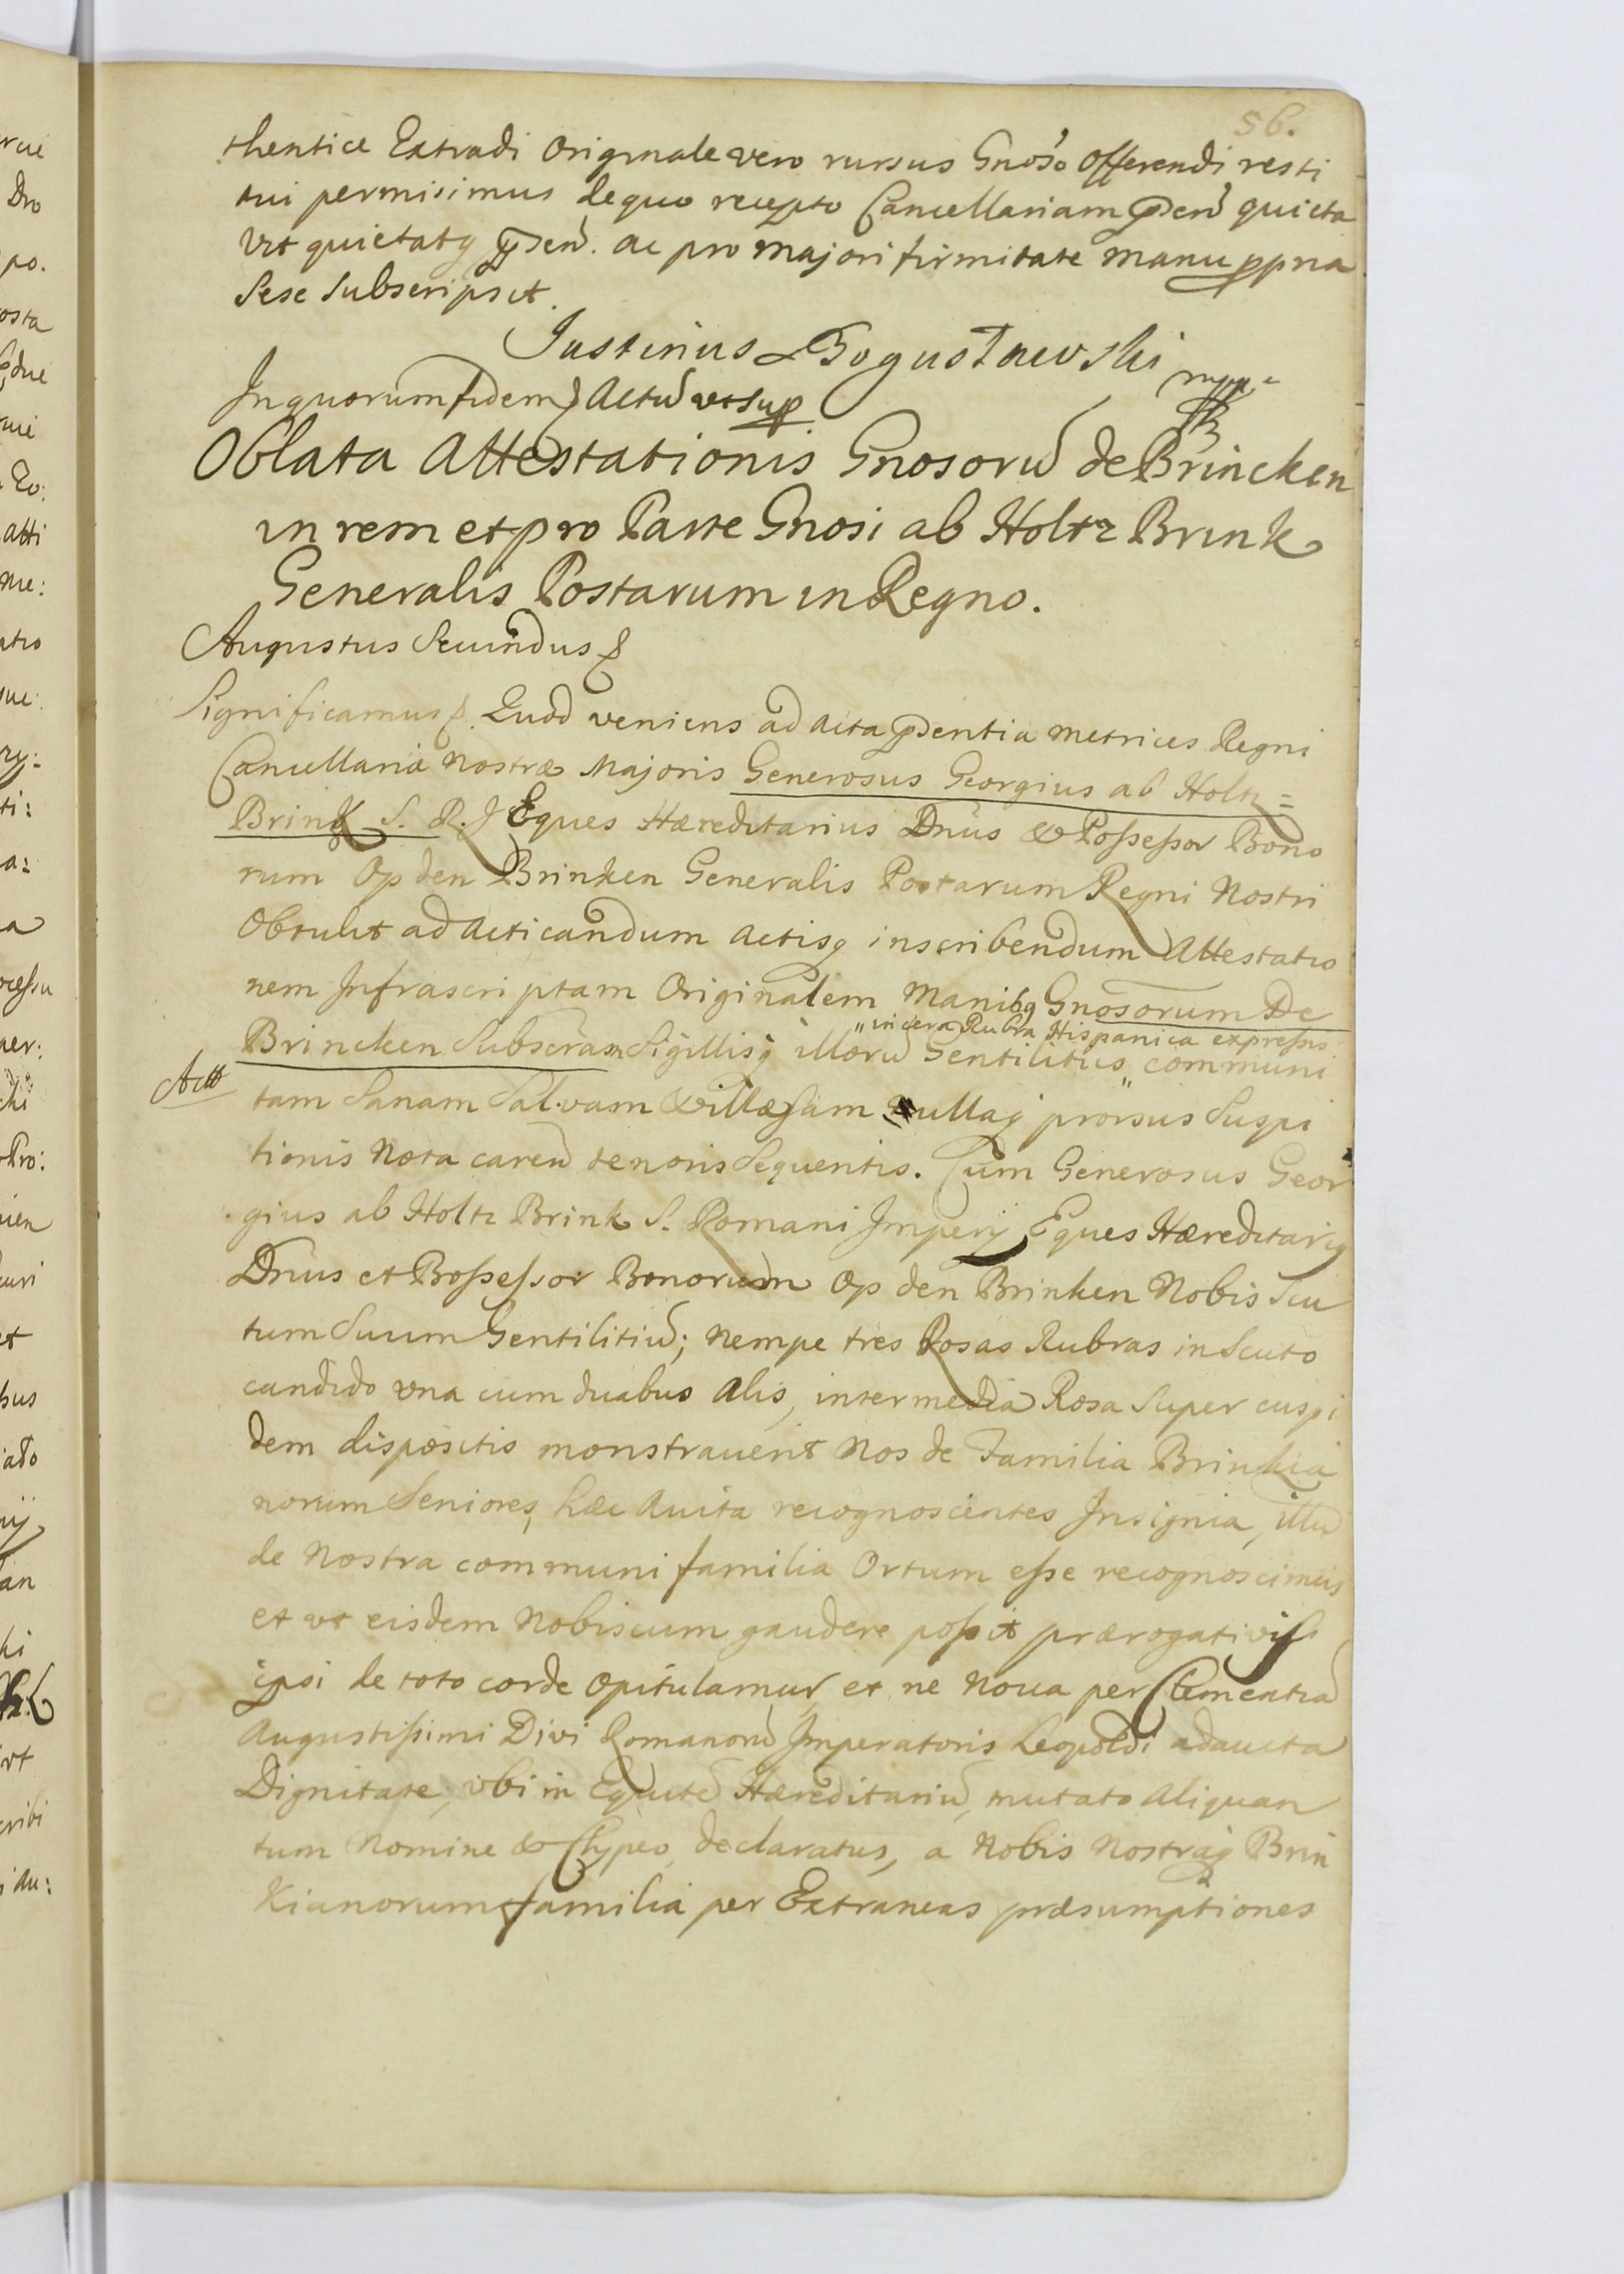 56.
thentice Extradi Originale vero rursus Gnoso Offerendi resti
tui permisimus de quo recepto Cancellariam pñtẽ quieta
vit quietatq pñtẽ. ac pro majori firmitate manu ppria
Sese Subscripsit.
Justinus Bogusławski mpp.
In quorum fidem Actũ ut Sup
Oblata Attestationis Gnosorũ de Brincken
in rem et pro Parte Gnosi ab Holtz Brink
Generalis Postarum in Regno.
Augustus Secundus
Significamus. Quod veniens ad Acta pñtia Metrices Regni
Cancellariæ Nostræ Majoris Generosus Georgius ab Holtz=
Brink S. R. J Eques Hæreditarius Dnus & Possessor Bono
rum Op den Brinken Generalis Postarum Regni Nostri
Obtulit ad Acticandum Actisq inscribendum Attestatio
nem Infrascriptam Originalem Manibq Gnosorum De
"in cera Rubra Hispanica expressis
Brincken Subscram Sigillisq illorũ Gentilitiis" communi
Actt
tam Sanam Salvam & illæsam nullaq prorsus Suspi
tionis Nota carenẽ tenoris Sequentis. Cum Generosus Geor
gius ab Holtz Brink S. Romani Imperij Eques Hæreditariq
Dnus et Bossessor Bonorum Op den Brinken Nobis Scu
tum Suum Gentilitiũ; Nempe tres Rosas Rubras in Scuto
candido vna cum duabus Alis, intermedia Rosa Super cuspi
dem dispositis monstrauerit Nos de Familia Brinkia
norum Seniores, hæc Auita recognoscentes Insignia, illũ
de Nostra communi familia Ortum esse recognoscimus
et vt eisdem Nobiscum gaudere possit prærogativis
ipsi de toto corde opitulamur, et ne Noua per Clementiã
Augustissimi Divi Romanorũ Imperatoris Leopoldi adaucta
Dignitate, vbi in Equitẽ Hæreditariũ, mutato Aliquan
tum Nomine & Clypeo, declaratus, a Nobis Nostraq Brin
Kianorum familia per Extraneas præsumptiones